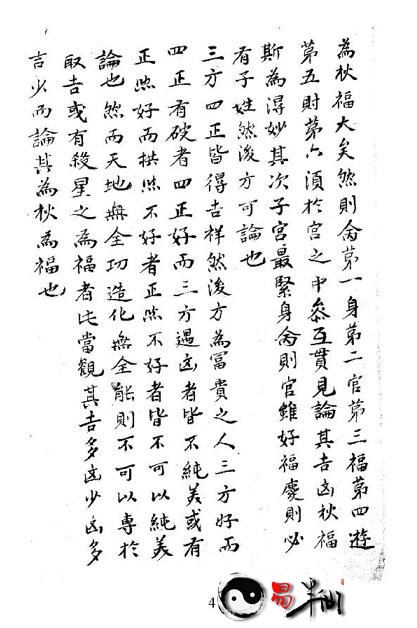 為秋福大矣然則禽第一身第二官第三福第四遊
第五財第六須於宮之中叅互貫見論其吉凶秋福
斯為得妙其次子宮最緊身禽則官雖好福慶則必
有子姓然後方可論也
三方四正皆得吉祥然後方為富貴之人三方好而
四正有破者四正好而三方遇凶者皆不純美或有
正照好而拱照不好者正照不好者皆不可以純美
論也然而天地無全功造化無全能則不可以專於
取吉或有殺星之為福者此當觀其吉多凶少凶多
吉少而論其為秋為福也
4
易半仙